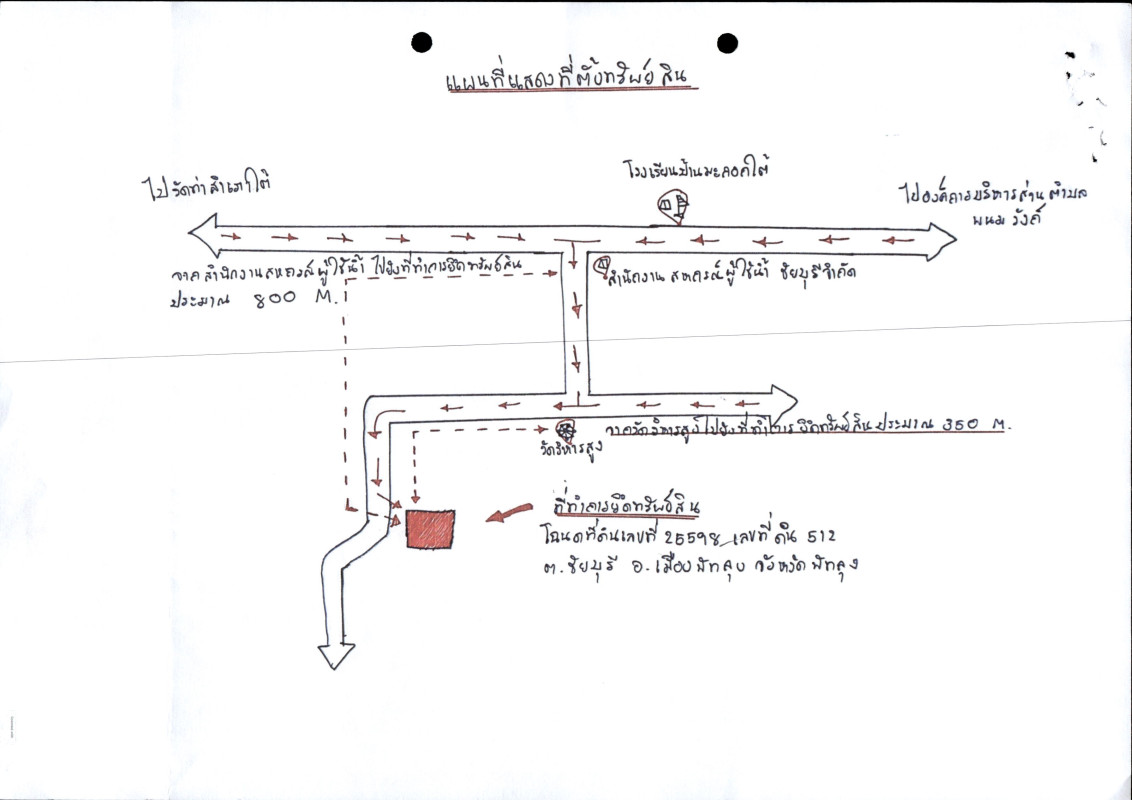 แผนที่แสดงที่ตั้งทรัพย์สิน
ไปวัดท่าสำเภาใต้
โรงเรียนบ้านมะกอกใต้
ไปองค์การบริหารส่วนตำบล
พนมวังค์
จากสำนักงานสหกรณ์ผู้ใช้น้ำ ไปยังที่ทำการยึดทรัพย์สิน
ประมาณ 800 M.
สำนักงาน สหกรณ์ผู้ใช้น้ำ ชัยบุรีจำกัด
จากวัดวิหารสูงไปยังที่ทำการยึดทรัพย์สินประมาณ 350 M.
วัดวิหารสูง
ที่ทำการยึดทรัพย์สิน
โฉนดที่ดินเลขที่ 25598 เลขที่ดิน 512
ต.ชัยบุรี อ.เมืองพัทลุง จังหวัดพัทลุง